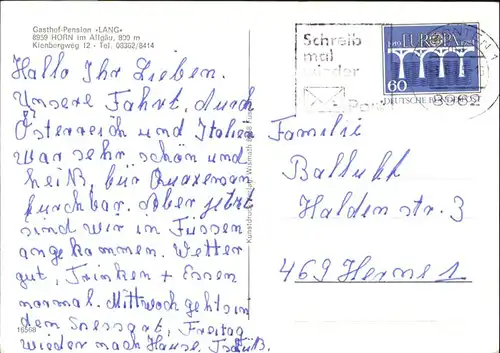 Gasthof-Pension »LANG«
8959 HORN im Allgäu, 800 m
Kienbergweg 12 - Tel. 08362/8414
Hallo Ihr Lieben.
Unsere Fahrt, durch
Österreich und Italien
war sehr schön und
heiß, für
furchbar. Aber jetzt
sind wir in Füssen
angekommen. Wetter
gut, Trinken + Essen
normal. Mittwoch gehts in
den Spessart, Freitag
wieder nach Hause. Tschüß.
16568
Schreib
mal
wieder
Post
EUROPA
60
DEUTSCHE BUNDESPOST
Familie
Halden str. 3
469 Herne 1